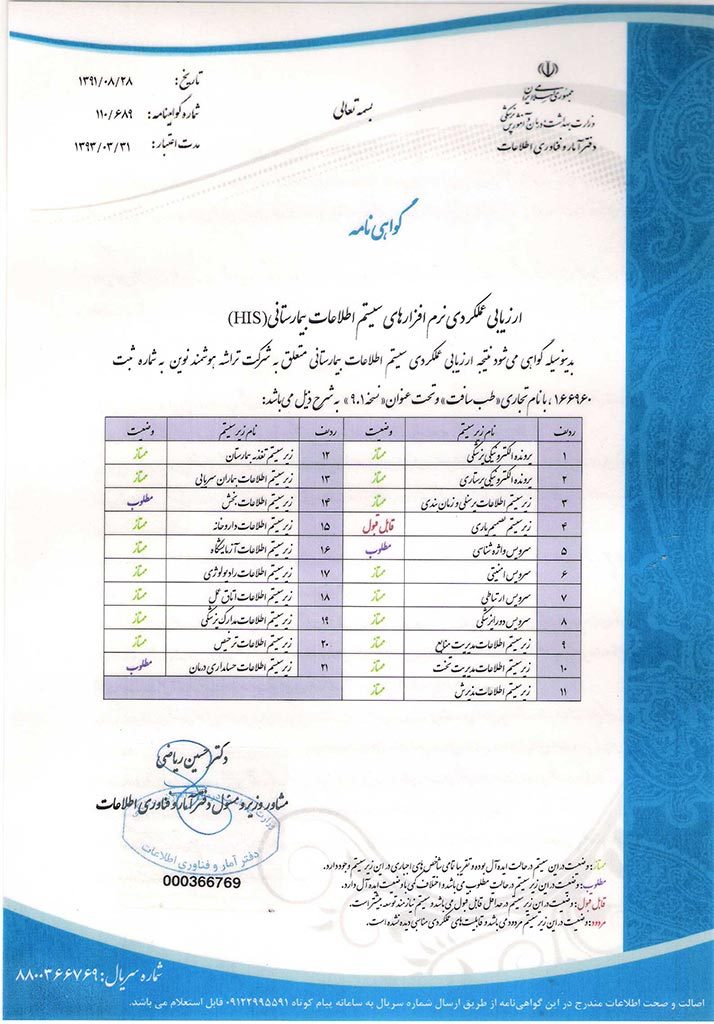 جمهوری اسلامی ایران
وزارت بهداشت درمان و آموزش پزشکی
دفتر آمار و فناوری اطلاعات
بسمه تعالی
تاریخ: ۱۳۹۱/۰۸/۲۸
شماره گواهینامه: ۱۱۰/۶۸۹
مدت اعتبار: ۱۳۹۳/۰۳/۳۱
گواهی نامه
ارزیابی عملکردی نرم افزارهای سیستم اطلاعات بیمارستانی (HIS)
بدینوسیله گواهی می شود نتیجه ارزیابی عملکردی سیستم اطلاعات بیمارستانی متعلق به شرکت تراشه هوشمند نوین به شماره ثبت
۱۶۶۹۶۰، با نام تجاری «طب سافت» و تحت عنوان «نسخه ۹.۱» به شرح ذیل می باشد:
ردیف نام زیر سیستم وضعیت ردیف نام زیر سیستم وضعیت
۱ پرونده الکترونیکی پزشکی ممتاز ۱۲ زیر سیستم تغذیه بیمارستان ممتاز
۲ پرونده الکترونیکی پرستاری ممتاز ۱۳ زیر سیستم اطلاعات بیماران سرپایی ممتاز
۳ زیر سیستم اطلاعات پرسنلی و زمان بندی ممتاز ۱۴ زیر سیستم اطلاعات بخش مطلوب
۴ زیر سیستم تصمیم یاری قابل قبول ۱۵ زیر سیستم اطلاعات داروخانه ممتاز
۵ سرویس واژه شناسی مطلوب ۱۶ زیر سیستم اطلاعات آزمایشگاه ممتاز
۶ سرویس امنیتی ممتاز ۱۷ زیر سیستم اطلاعات رادیولوژی ممتاز
۷ سرویس ارتباطی ممتاز ۱۸ زیر سیستم اطلاعات اتاق عمل ممتاز
۸ سرویس دورا پزشکی ممتاز ۱۹ زیر سیستم اطلاعات مدارک پزشکی ممتاز
۹ زیر سیستم اطلاعات مدیریت منابع ممتاز ۲۰ زیر سیستم اطلاعات ترخیص ممتاز
۱۰ زیر سیستم اطلاعات مدیریت تخت ممتاز ۲۱ زیر سیستم اطلاعات حسابداری درمان مطلوب
۱۱ زیر سیستم اطلاعات پذیرش ممتاز
دکتر حسین ریاضی
مشاور وزیر و مسئول دفتر آمار و فناوری اطلاعات
دفتر آمار و فناوری اطلاعات
000366769
ممتاز: وضعیت در این سیستم در حالت ایده آل بوده و تقریبا تمامی شاخص های اجباری در این زیر سیستم وجود دارد.
مطلوب: وضعیت در این زیر سیستم در حالت مطلوب می باشد و اختلاف کمی با وضعیت ایده آل دارد.
قابل قبول: وضعیت در این زیر سیستم در حداقل قابل قبول می باشد و سیستم نیازمند توسعه بیشتر است.
مردود: وضعیت در این زیر سیستم مردود می باشد و قابلیت های عملکردی مناسبی دیده نشده است.
شماره سریال: ۸۸۰۰۳۶۶۷۶۹
اصالت و صحت اطلاعات مندرج در این گواهی‌نامه از طریق ارسال شماره سریال به سامانه پیام کوتاه ۰۹۱۲۲۹۹۵۵۹۱ قابل استعلام می باشد.